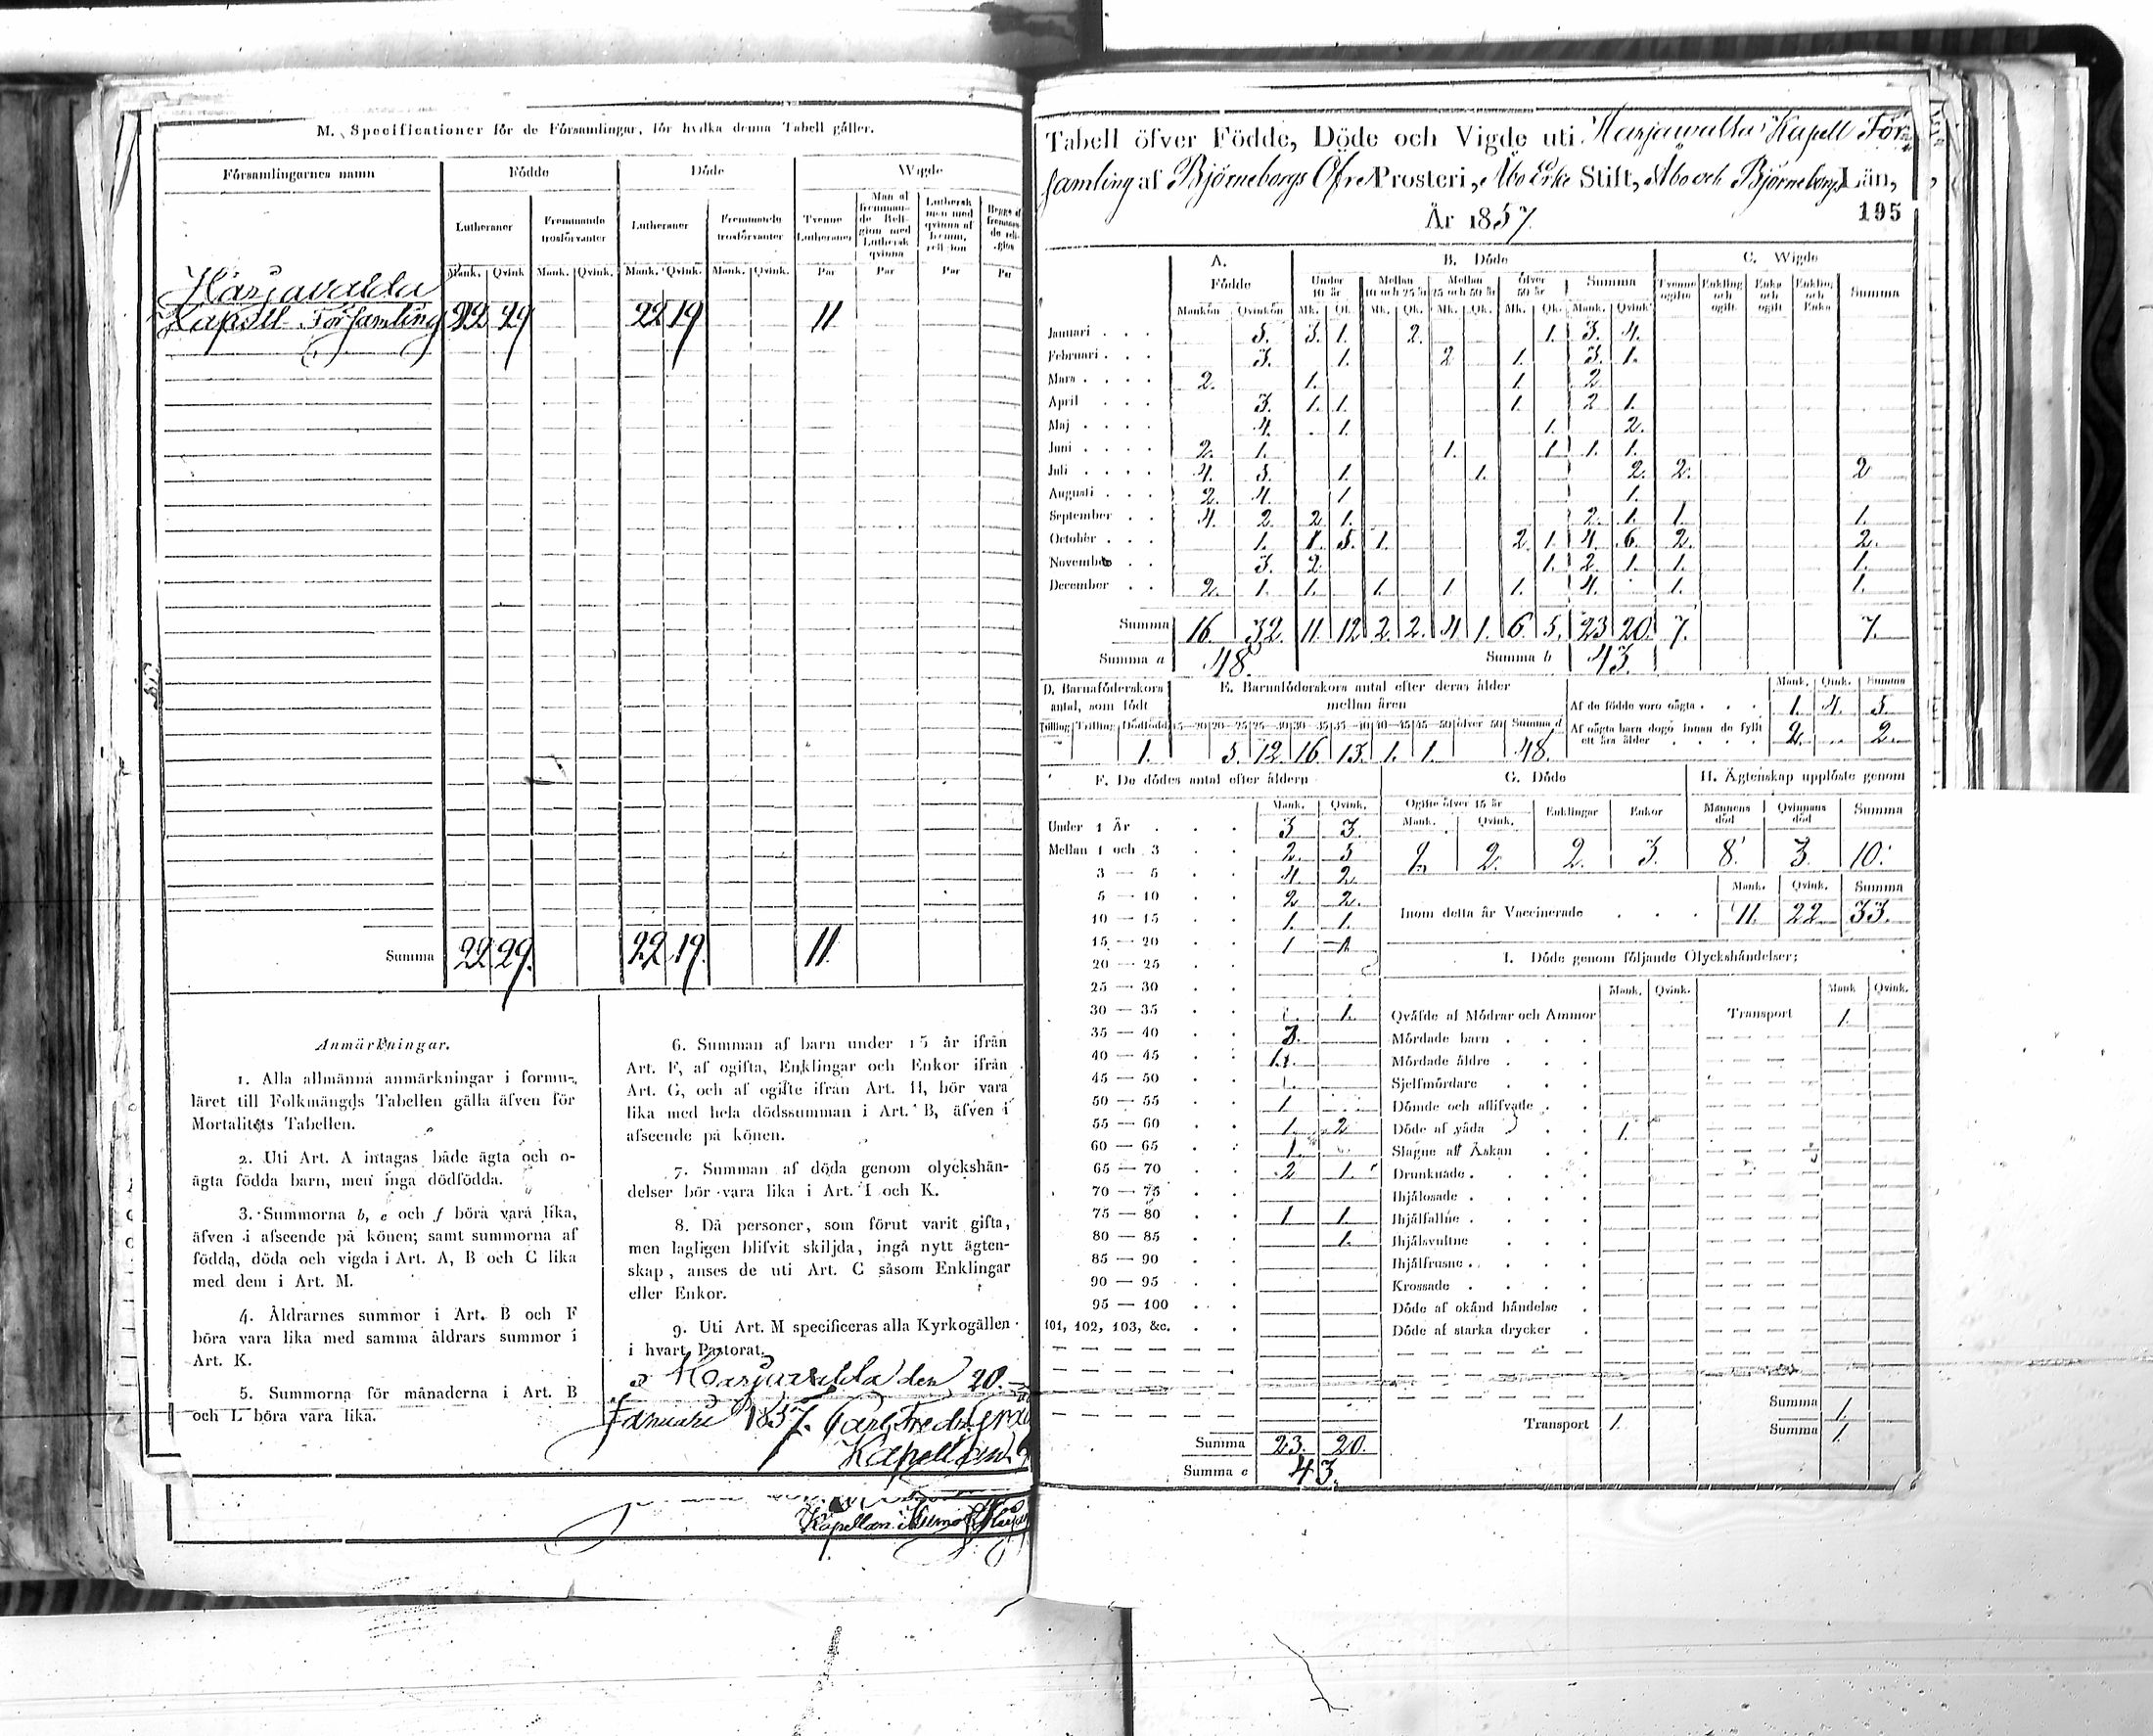 M. Specificationer för de Församlingar, för hvilka denna Tabell gäller.
Församlingarnes namn Födde Döde Wigde
Lutheraner Fremmande trosförvanter Lutheraner Fremmande trosförvanter Tvenne Lutheraner Man af fremmande Religion med Luthersk qvinna Luthersk man med qvinna af fremm. religion Begge af fremmande religion
Mank. Qvink. Mank. Qvink. Mank. Qvink. Mank. Qvink. Par Par Par Par
Harjavalda
Kapell Församling 22 29 22 19 11
Summa 22 29. 22 19. 11
Anmärkningar.
1. Alla allmänna anmärkningar i formu-
läret till Folkmängds Tabellen gälla äfven för
Mortalitets Tabellen.
2. Uti Art. A intagas både ägta och o-
ägta födda barn, men inga dödfödda.
3. Summorna b, e och f böra vara lika,
äfven i afseende på könen; samt summorna af
födda, döda och vigda i Art. A, B och C lika
med dem i Art. M.
4. Åldrarnes summor i Art. B och F
böra vara lika med samma åldrars summor i
Art. K.
5. Summorna för månaderna i Art. B
och L böra vara lika.
6. Summan af barn under 15 år ifrån
Art. F, af ogifta, Enklingar och Enkor ifrån
Art. G, och af ogifte ifrån Art. H, bör vara
lika med hela dödssumman i Art. B, äfven i
afseende på könen.
7. Summan af döda genom olyckshän-
delser bör vara lika i Art. I och K.
8. Då personer, som förut varit gifta,
men lagligen blifvit skiljda, ingå nytt ägten-
skap, anses de uti Art. C såsom Enklingar
eller Enkor.
9. Uti Art. M specificeras alla Kyrkogällen
i hvart Pastorat.
Harjavalda den 20.
Januari 1857. Carl Fredr.
Kapellan
Kapellan i
Tabell öfver Födde, Döde och Vigde uti Harjawalla Kapell För-
samling af Björneborgs Öfre Prosteri, Åbo Erke Stift, Åbo och Björneborgs Län,
År 1857.
195
A. Födde B. Döde C. Wigde
Under 10 år Mellan 10 och 25 år Mellan 25 och 50 år öfver 50 år Summa Tvenne ogifte Enkling och ogift Enka och ogift Enkling och Enka Summa
Mankön Qvinkön Mk. Qk. Mk. Qk. Mk. Qk. Mk. Qk. Mank. Qvink.
Januari 5. 3. 1. 2. 1. 3. 4.
Februari 3. 1. 2 1. 3. 1.
Mars 2. 1. 1. 2
April 3. 1. 1. 1. 2 1.
Maj 4. 1. 1. 2.
Juni 2. 1. 1. 1 1. 1.
Juli 4. 3. 1. 1. 2. 2. 2
Augusti 2. 4. 1 1.
September 4. 2. 2 1. 2. 1. 1. 1.
Octobér 1. 1. 5. 1. 2. 1. 4. 6. 2. 2.
November 3. 2 1. 2. 1. 1. 1.
December 2. 1. 1. 1. 1 1. 4. 1. 1.
Summa 16. 32. 11. 12 2. 2. 4 1. 6. 5. 23 20. 7. 7.
Summa a 48. Summa b 43.
D. Barnaföderskors antal, som födt E. Barnaföderskors antal efter deras ålder mellan åren
Tvilling Trilling Dödfödd 15—20 20—25 25—30 30—35 35—40 40—45 45—50 öfver 50 Summa d
1. 5. 12. 16. 13. 1. 1. 48.
Mank. Qvink. Summa
Af de födde voro oägta 1. 4. 5.
Af oägta barn dogo innan de fyllt ett års ålder 2. 2.
F. De dödes antal efter åldern
Mank. Qvink.
Under 1 År 3 3.
Mellan 1 och 3 2. 5
3 — 5 4. 2
5 — 10 2 2.
10 — 15 1. 1.
15 — 20 1
20 — 25
25 — 30
30 — 35 1.
35 — 40
40 — 45
45 — 50
50 — 55 1
55 — 60 1. 2
60 — 65 1.
65 — 70 2 1.
70 — 75
75 — 80 1 1.
80 — 85 1.
85 — 90
90 — 95
95 — 100
101, 102, 103, &c.
Summa 23. 20.
Summa e 43.
G. Döde
Ogifte öfver 15 år Enklingar Enkor
Mank. Qvink.
2. 2. 3.
H. Ägtenskap upplöste genom
Mannens död Qvinnans död Summa
8. 3. 10.
Mank. Qvink. Summa
Inom detta år Vaccinerade 11. 22. 33.
I. Döde genom följande Olyckshändelser;
Mank. Qvink. Mank Qvink.
Qväfde af Mödrar och Ammor Transport 1.
Mördade barn
Mördade äldre
Sjelfmördare
Dömde och aflifvade
Döde af våda 1.
Slagne af Åskan
Drunknade
Ihjälosade
Ihjälfallne
Ihjälsvultne
Ihjälfrusne
Krossade
Döde af okänd händelse
Döde af starka drycker
Summa 1.
Transport 1. Summa 1.